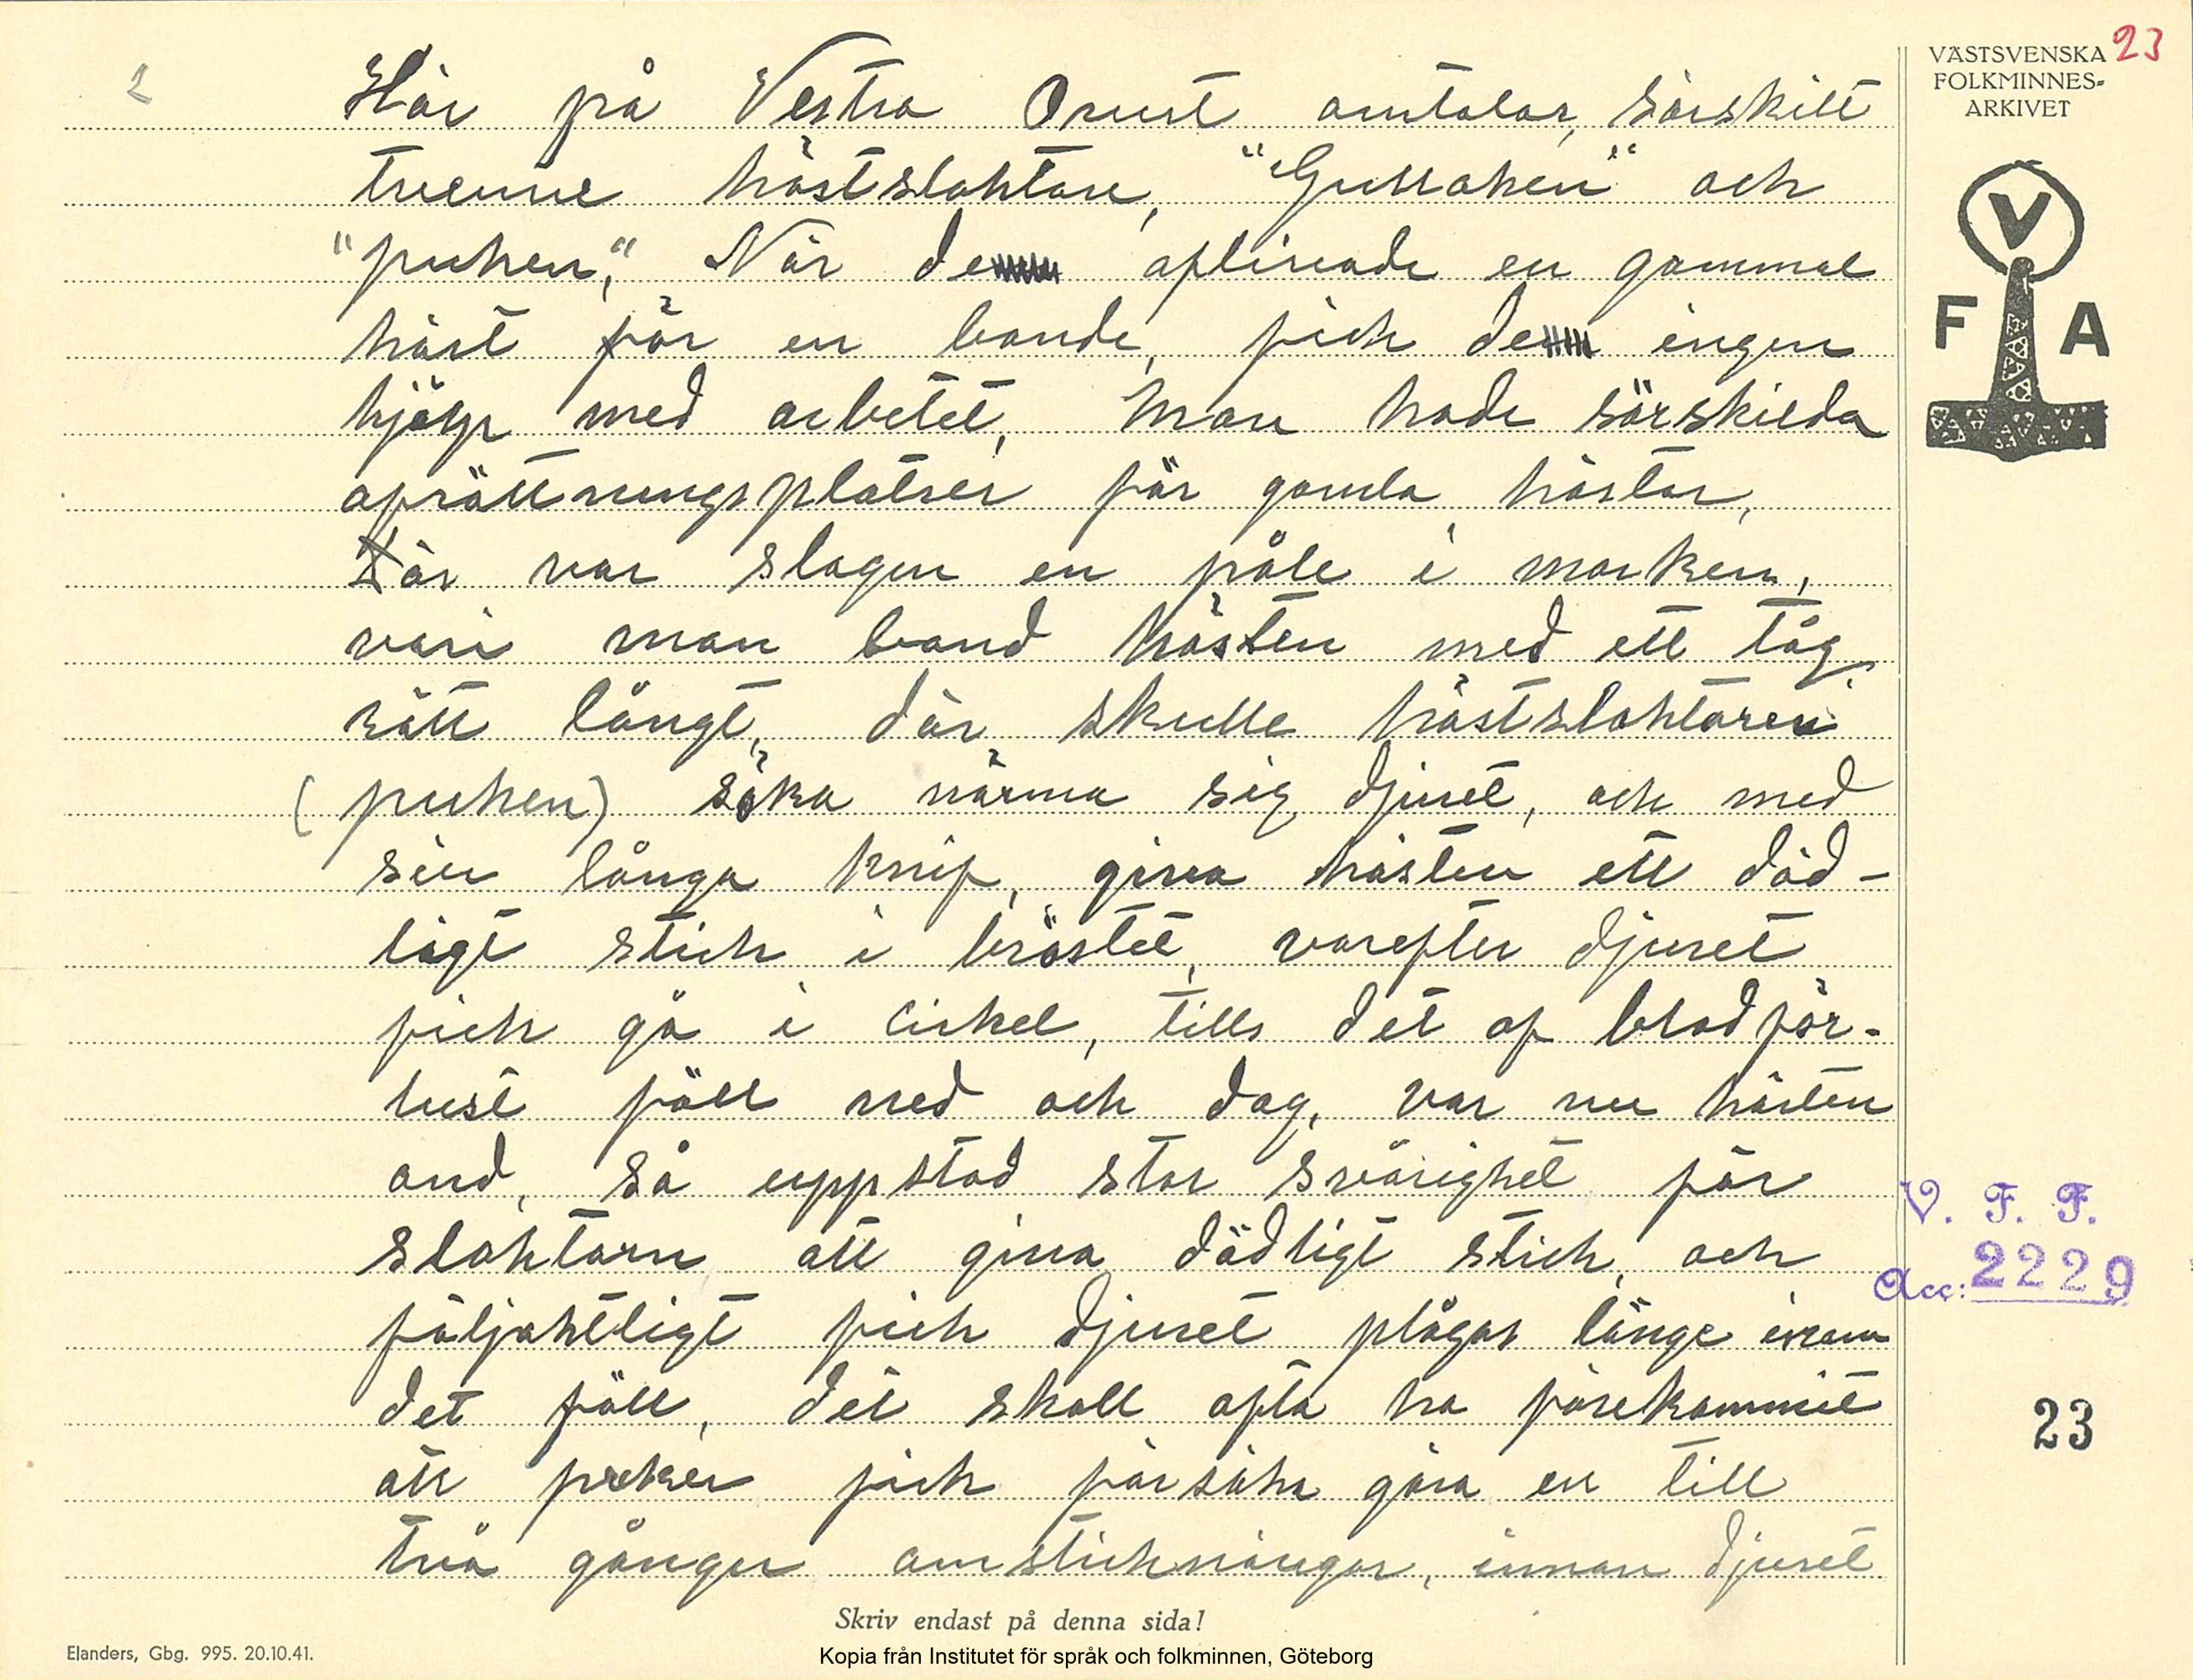 2
23
VÄSTSVENSKA
FOLKMINNES-
ARKIVET
V
F A
Här på Vestra Orust omtalas, särskilt
tvenne hästslaktare, "Gullaken" och
"puken," När de aflivade en gammal
häst för en bonde, fick de ingen
hjälp med arbetet, man hade särskilda
afrättningsplatser för gamla hästar,
Där var slagen en påle i marken,
vari man band hästen med ett tåg
rätt långt, där skulle hästslaktaren
(puken) söka närma sig djuret, och med
sin långa knif, giva hästen ett död-
ligt stick i bröstet, varefter djuret
fick gå i cirkel, tills det af blodför-
lust föll ned och dog, var nu hästen
ond, så uppstod stor svårighet för
slaktarn att giva dödligt stick, och
följaktligt fick djuret plågas länge innan
det föll, det skall ofta ha förekommit
att puken fick försöka göra en till
två gånger omstickningar, innan djuret
V. F. F.
Acc: 2229
23
Skriv endast på denna sida!
Elanders, Gbg. 995. 20.10.41.
Kopia från Institutet för språk och folkminnen, Göteborg